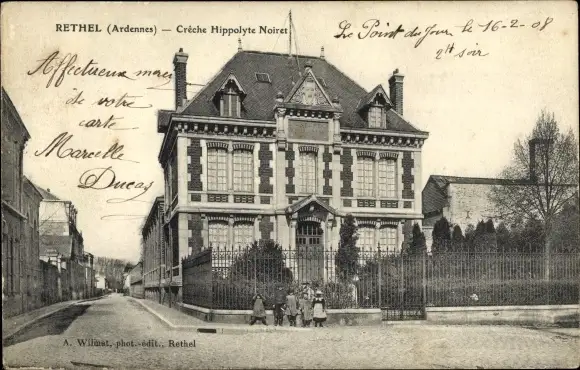 RETHEL (Ardennes) — Crêche Hippolyte Noiret
Le Point du Jour le 16-2-08
2h soir
Affectueux merci
de votre
carte
Marcelle
Ducas
A. Wilmet, phot.-édit., Rethel